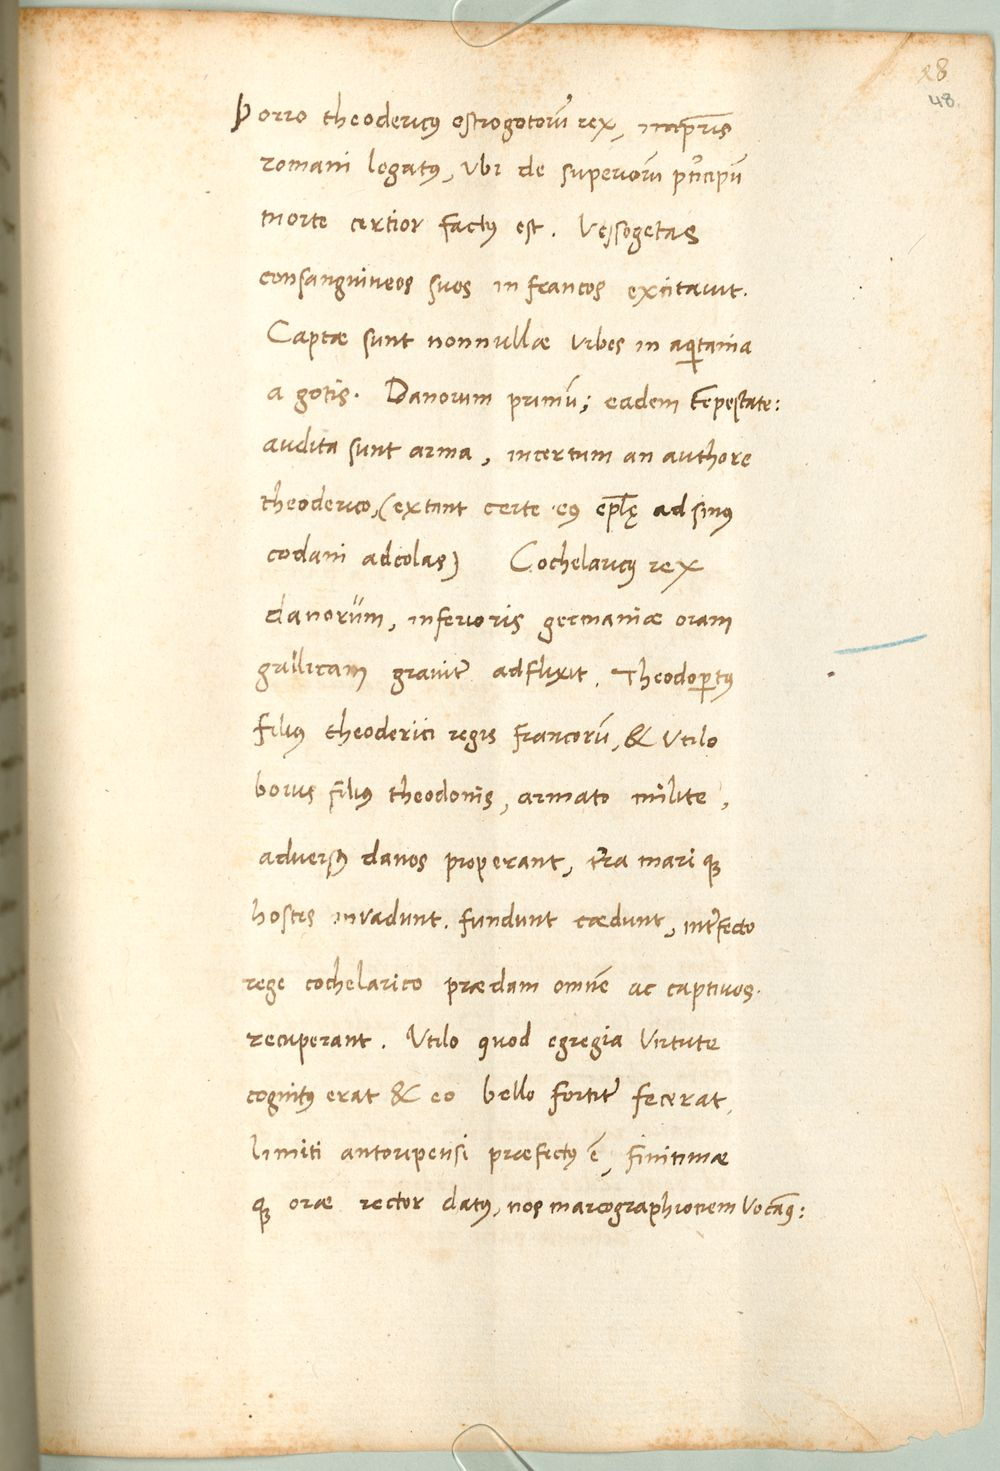 28
48.
Porro theodericꝰ ostrogotorū rex, imꝑris
romani legatꝰ, vbi de superiorū pͥncipū
morte certior factꝰ est. Vessogetas
consanguineos suos in francos excitauit.
Captæ sunt nonnullæ vrbes in aqͥtania
a gotis. Danorum primū; eadem tēpestate:
audita sunt arma, incertum an authore
theoderico, (extant certe eiꝰ epl̄ę ad sinus
codani adcolas) Cochelaricꝰ rex
danorum, inferioris germaniæ oram
gallicam grauiter adflixit. Theodoꝑtꝰ
filiꝰ theoderici regis francorū, & vtilo
boius filiꝰ theodonis, armato milite,
aduersꝰ danos properant, terra mari qꝫ
hostes invadunt. fundunt cædunt, interfecto
rege cochelarico prædam omnē ac captiuos.
recuperant. Vtilo quod egregia virtute
cognitꝰ erat & eo bello fortiter fecerat,
limiti antoripensi præfectꝰ ē, finitimæ
qꝫ oræ rector datꝰ, nos marcographionem vocamꝰ: